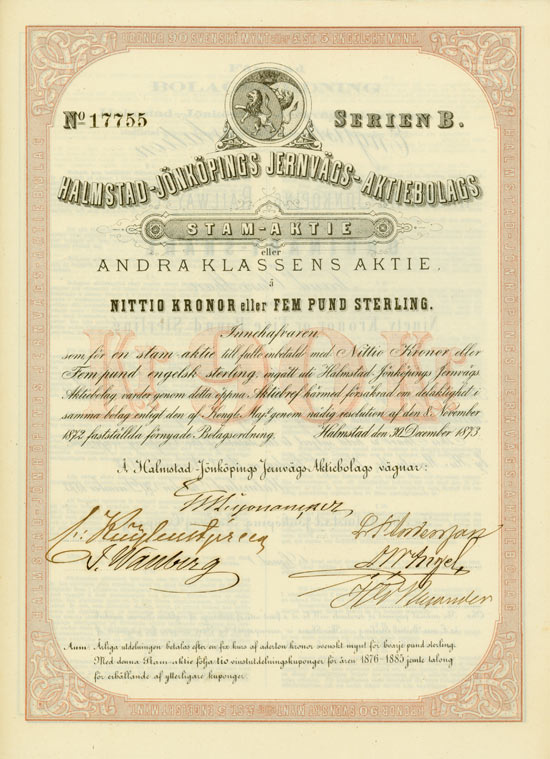 KRONOR 90 SVENSKT MYNT eller £ ST. 5 ENGELSKT MYNT.
No 17755
SERIEN B.
HALMSTAD-JÖNKÖPINGS JERNVÄGS-AKTIEBOLAGS
STAM-AKTIE
eller
ANDRA KLASSENS AKTIE,
å
NITTIO KRONOR eller FEM PUND STERLING.
Kr 90 Kr
Innehafvaren
som för en stam-aktie till fullo inbetalt med Nittio Kronor eller
Fem pund engelsk sterling, ingått uti Halmstad-Jönköpings Jernvägs
Aktiebolag varder genom detta öppna Aktiebref härmed försäkrad om delaktighet i
samma bolag enligt den af Kongl. Maj:t genom nådig resolution af den 8. November
1872 fastställda förnyade Bolagsordning. Halmstad den 30 December 1873.
Å Halmstad-Jönköpings Jernvägs Aktiebolags vägnar:
Anm: Årliga utdelningen betalas efter en fix kurs af aderton kronor svenskt mynt för hvarje pund sterling.
Med denna Stam-aktie följa tio vinstutdelningskuponger för åren 1876-1885 jemte talong
för erhållande af ytterligare kuponger.